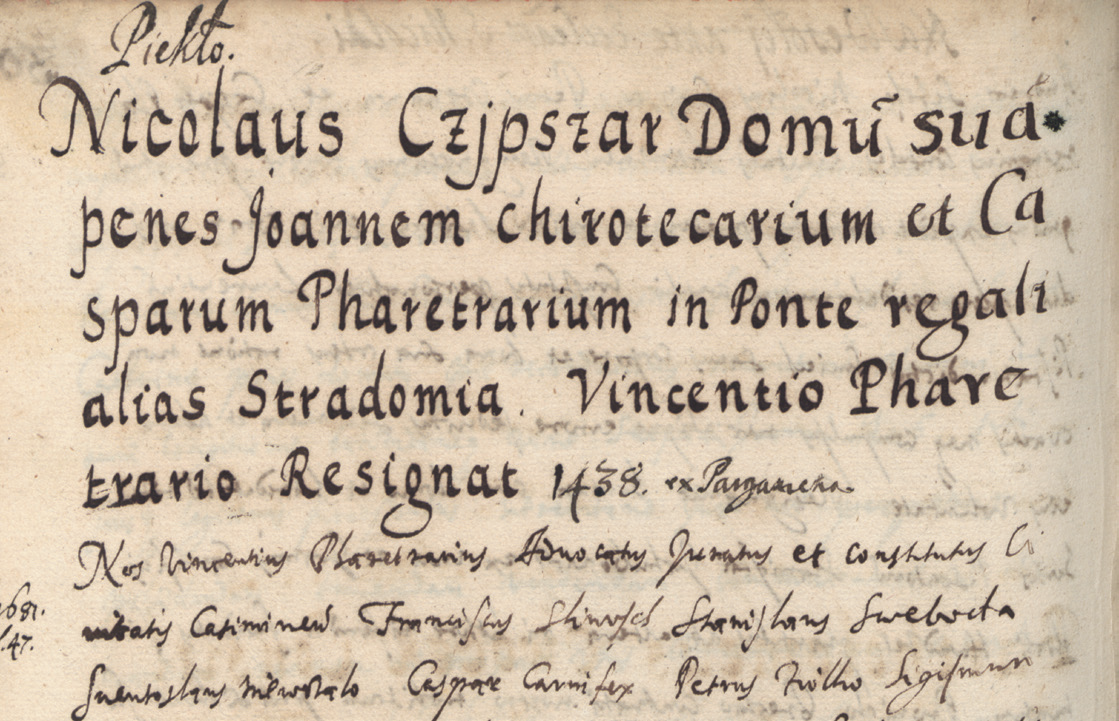 Piekło.
Nicolaus Czjpszar Domū suā
penes Joannem Chirotecarium et Ca
sparum Pharetrarium in Ponte regali
alias Stradomia. Vincentio Phare
trario Resignat 1438. ex Pargamena
Nos Vincentius Pharetrarius Advocatus Juratus et constitutus Ci
vitatis Casimirien Franciscus Stanislaus Swebocta
Caspar Carnifex Petrus Sigismun